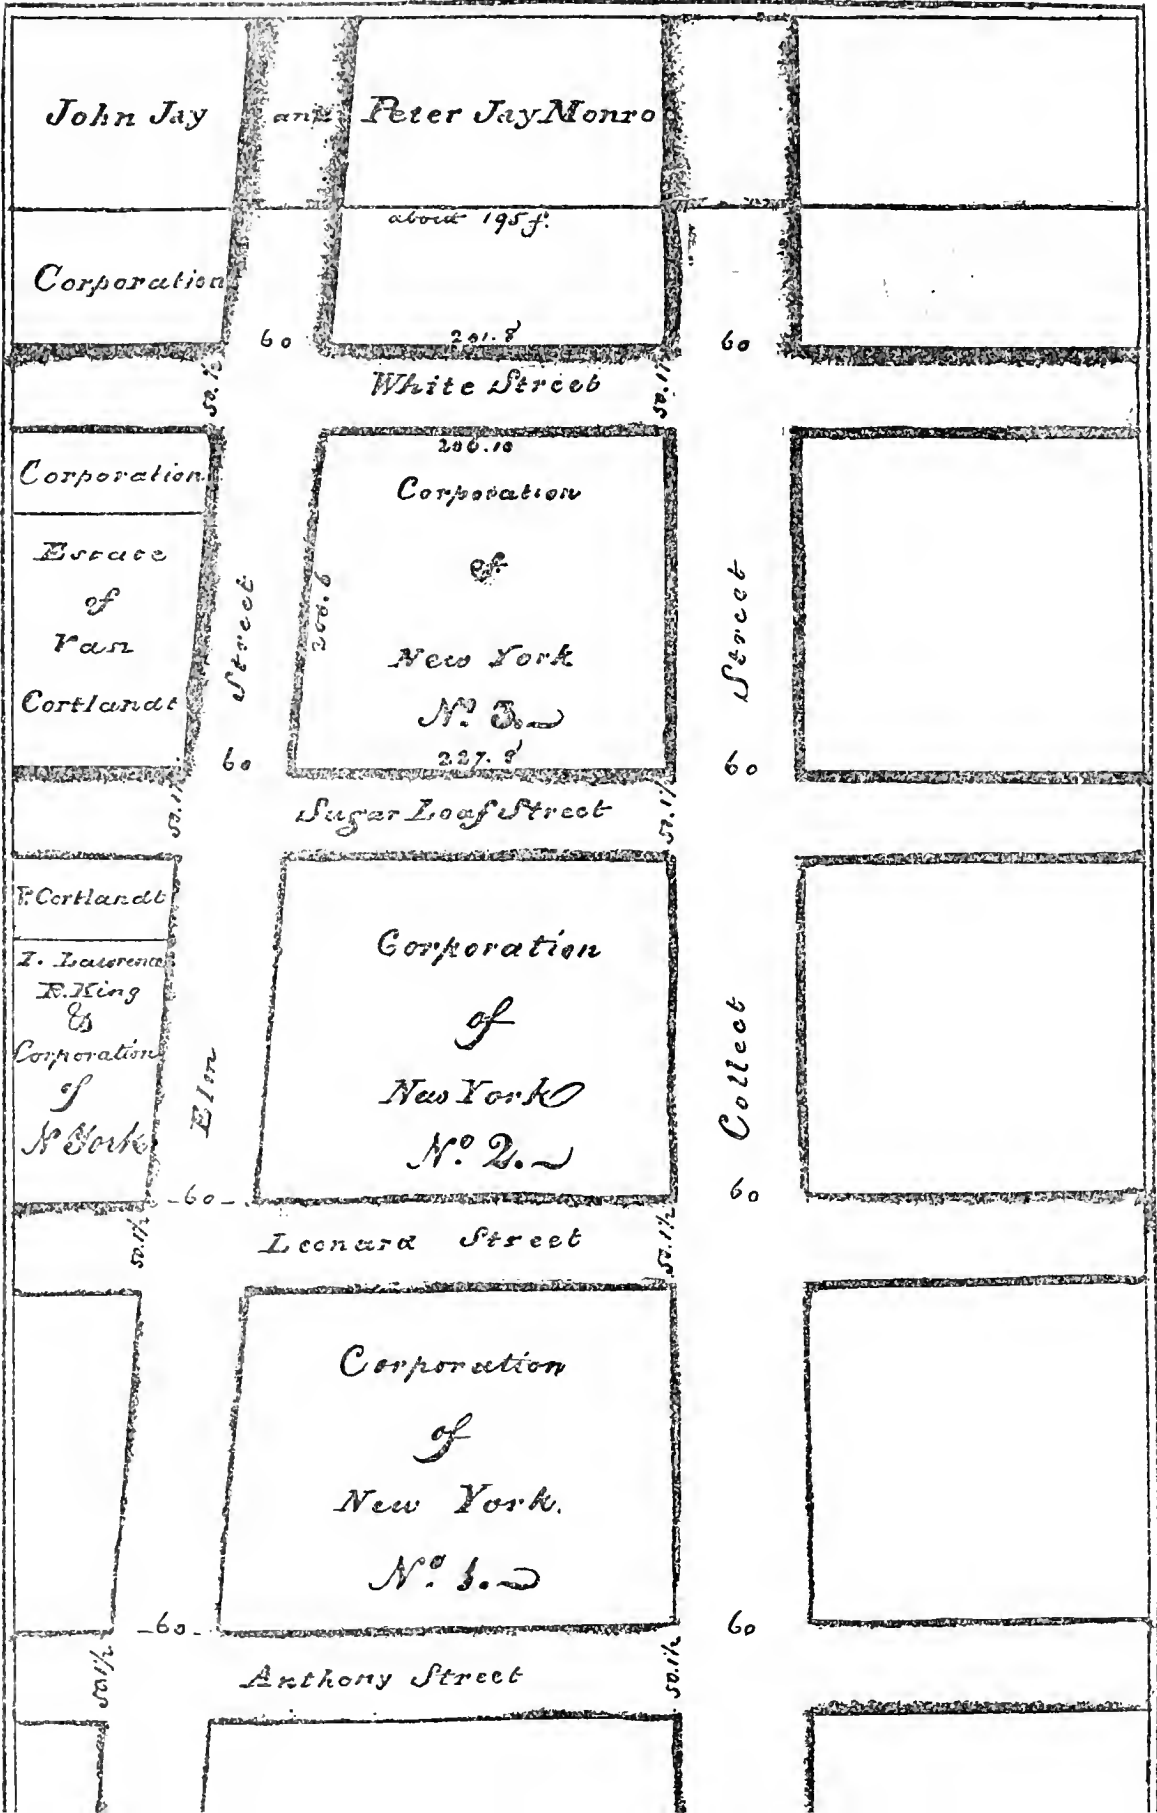 John Jay and Peter Jay Monro
about 195 f.
Corporation
60
201.8
60
White Street
50.1½
50.1½
Corporation
206.10
Corporation
of
New York
No. 3.
227.8
Estate
of
Van
Cortlandt
Street
200.6
Street
60
60
Sugar Loaf Street
50.1½
50.1½
V. Cortlandt
I. Lawrence
R. King
&
Corporation
of
N York
Elm
Corporation
of
New York
No. 2.
Collect
-60-
60
Leonard Street
50.1½
50.1½
Corporation
of
New York.
No. 1.
-60-
60
Anthony Street
50.1½
50.1½